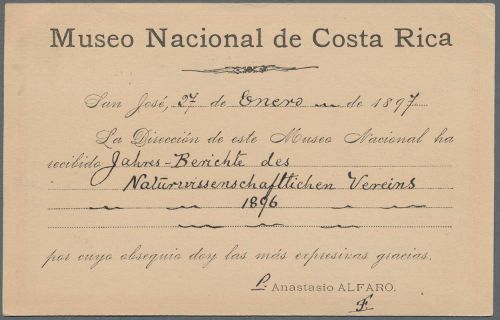 Museo Nacional de Costa Rica
San José, 27 de Enero de 1897
La Dirección de este Museo Nacional ha
recibido Jahres-Berichte des
Naturwissenschaftlichen Vereins
1896
por cuyo obsequio doy las más expresivas gracias.
P. Anastasio ALFARO.
F.